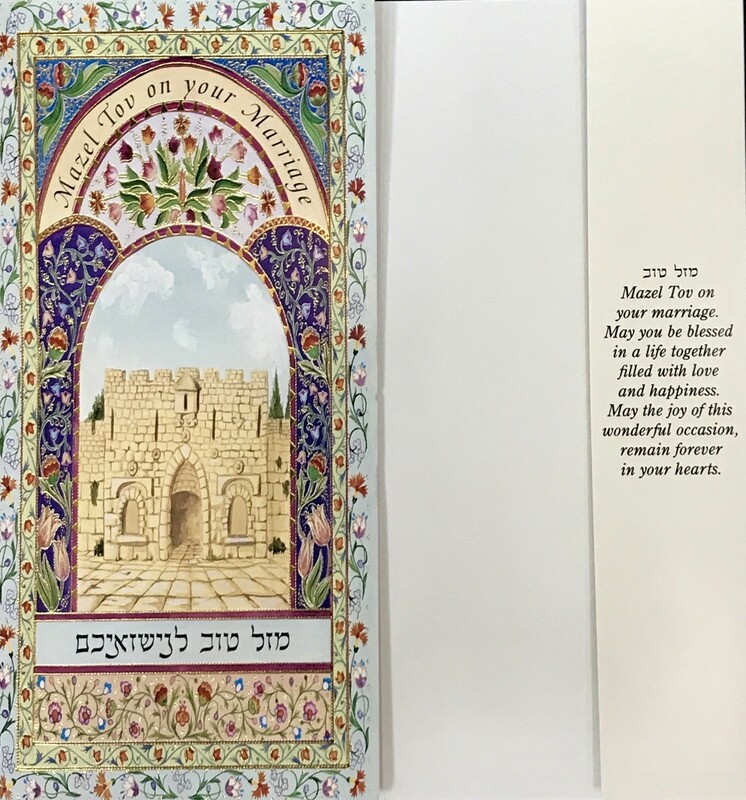 Mazel Tov on your Marriage
מזל טוב לנישואיכם
מזל טוב
Mazel Tov on
your marriage.
May you be blessed
in a life together
filled with love
and happiness.
May the joy of this
wonderful occasion,
remain forever
in your hearts.